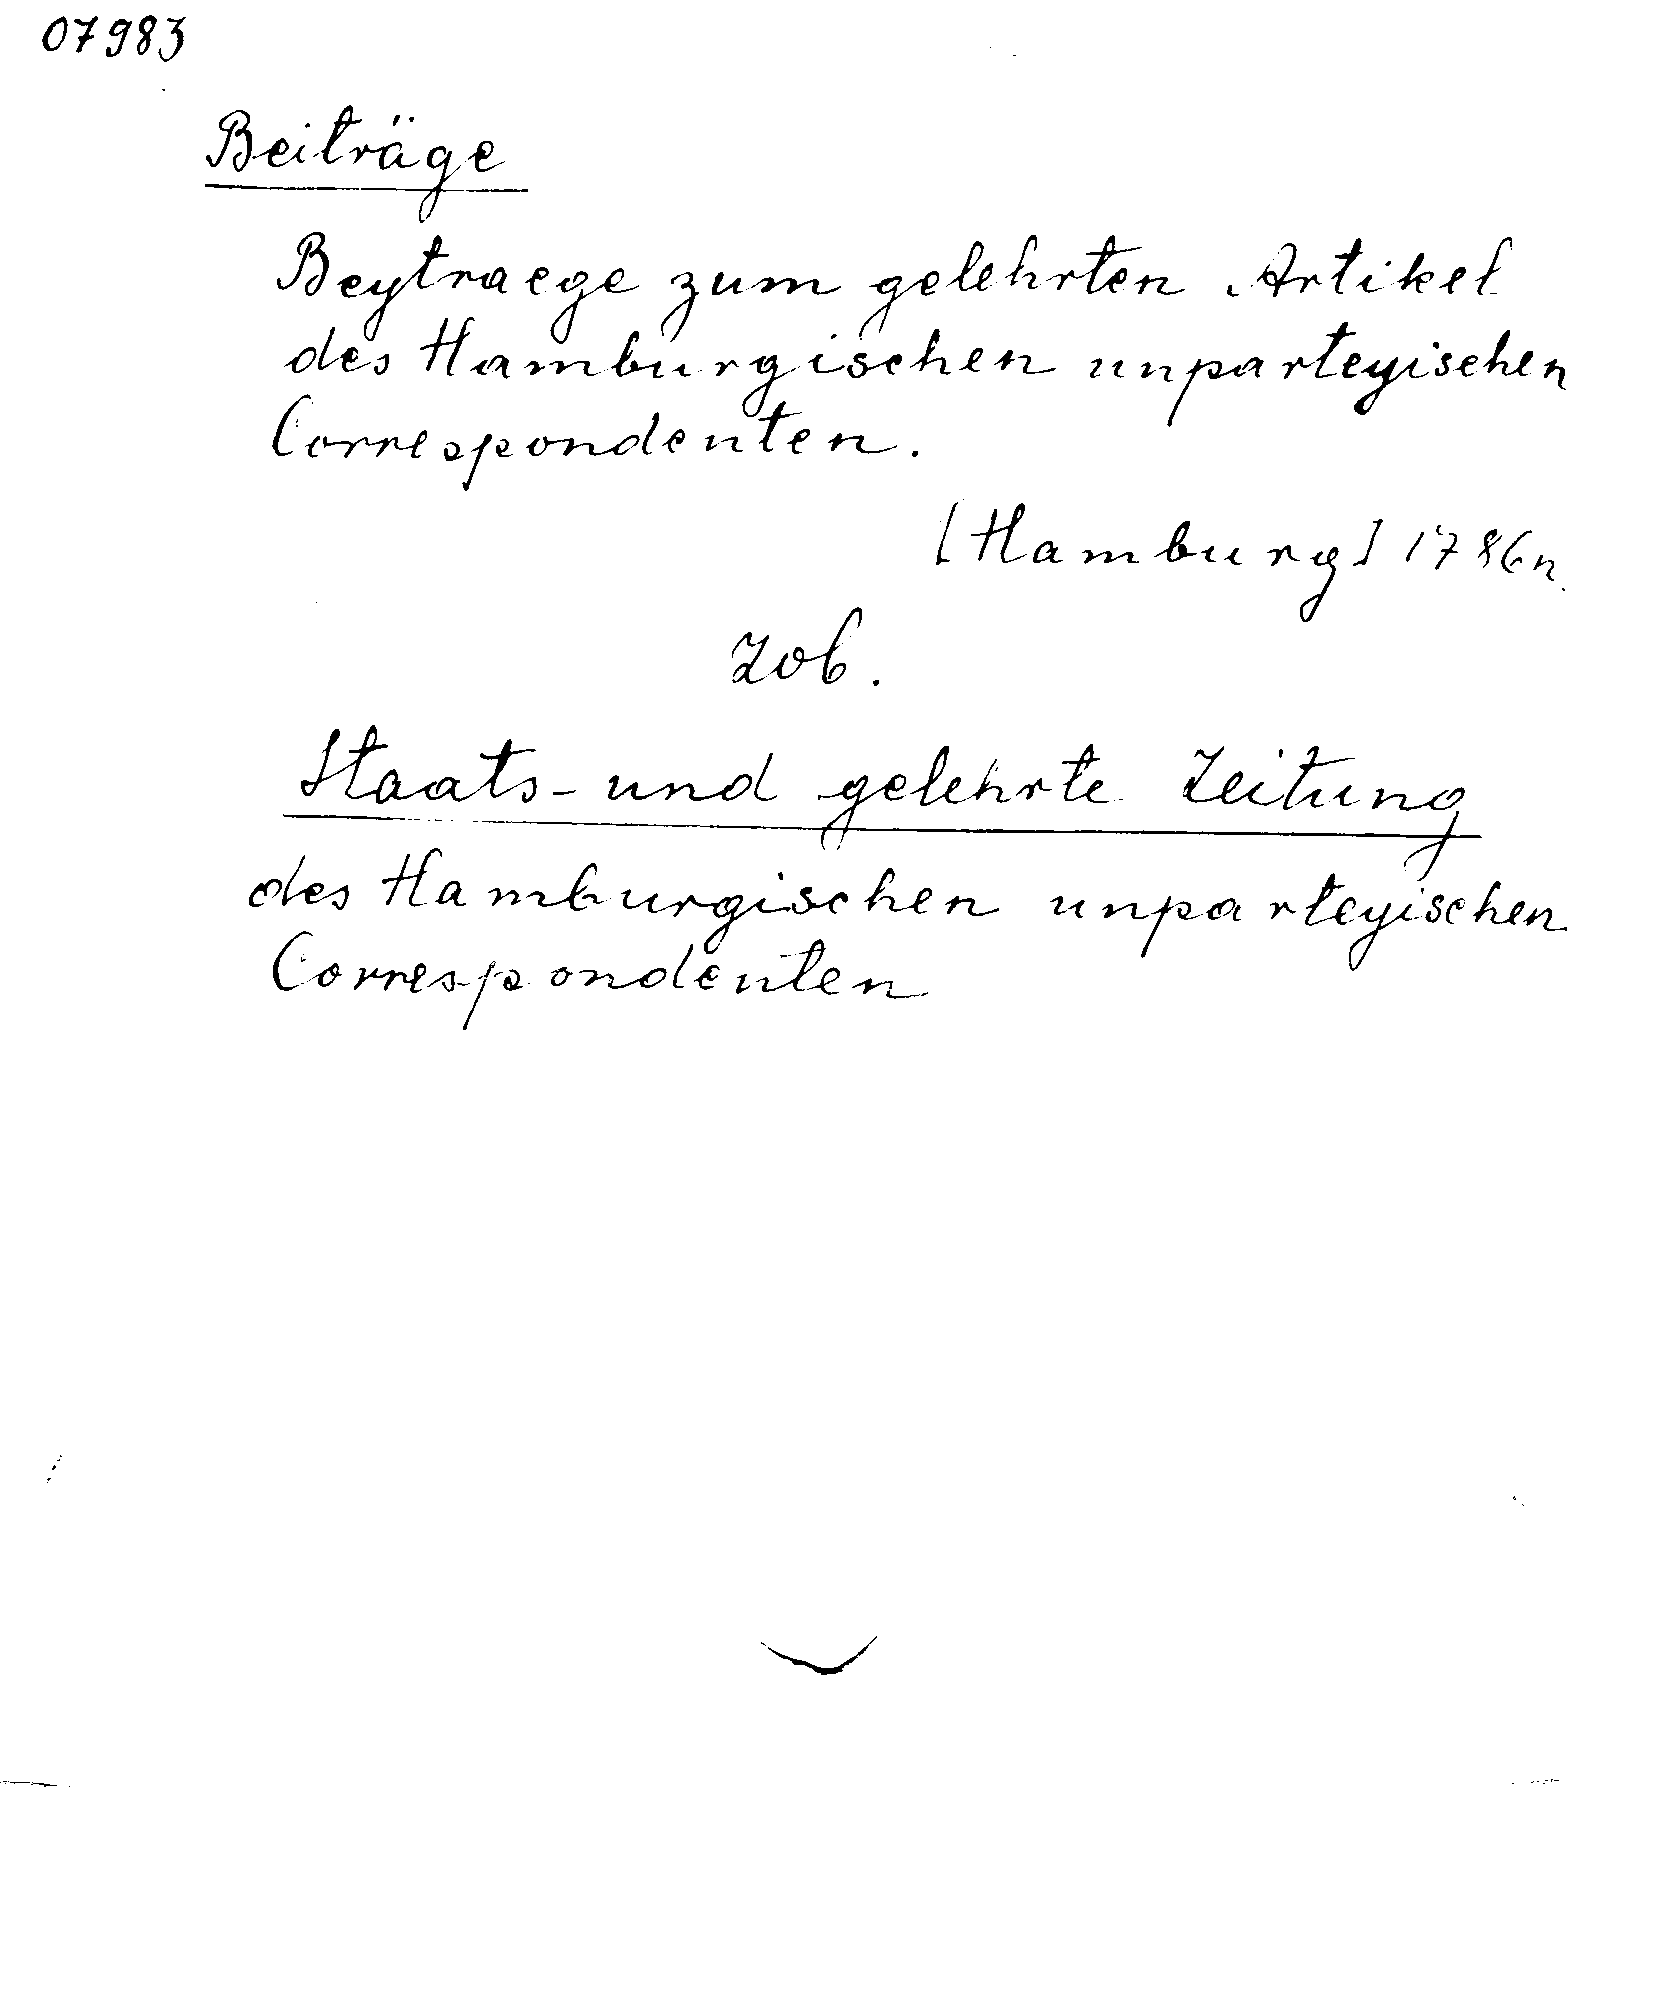 07983
Beiträge
Beytraege zum gelehrten Artikel
des Hamburgischen unparteyischen
Correspondenten.
[Hamburg] 1786n.
Zob.
Staats- und gelehrte Zeitung
des Hamburgischen unparteyischen
Correspondenten